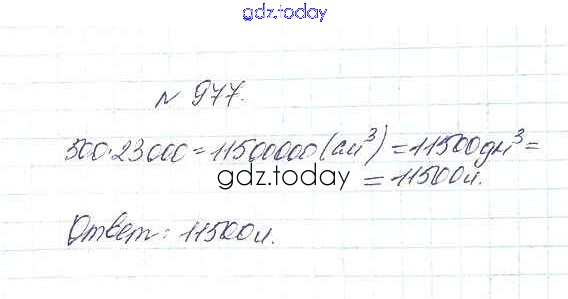 gdz.today
№ 977.
500·23000=11500000(см³)=11500дм³=
gdz.today
=11500л.
Ответ: 11500л.